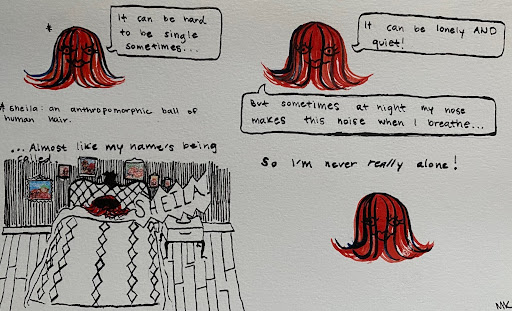 *
It can be hard
to be single
sometimes...
* Sheila: an anthropomorphic ball of
human hair.
It can be lonely AND
quiet!
But sometimes at night my nose
makes this noise when I breathe...
...Almost like my name's being
called...
SHEILA
So I'm never really alone!
MK